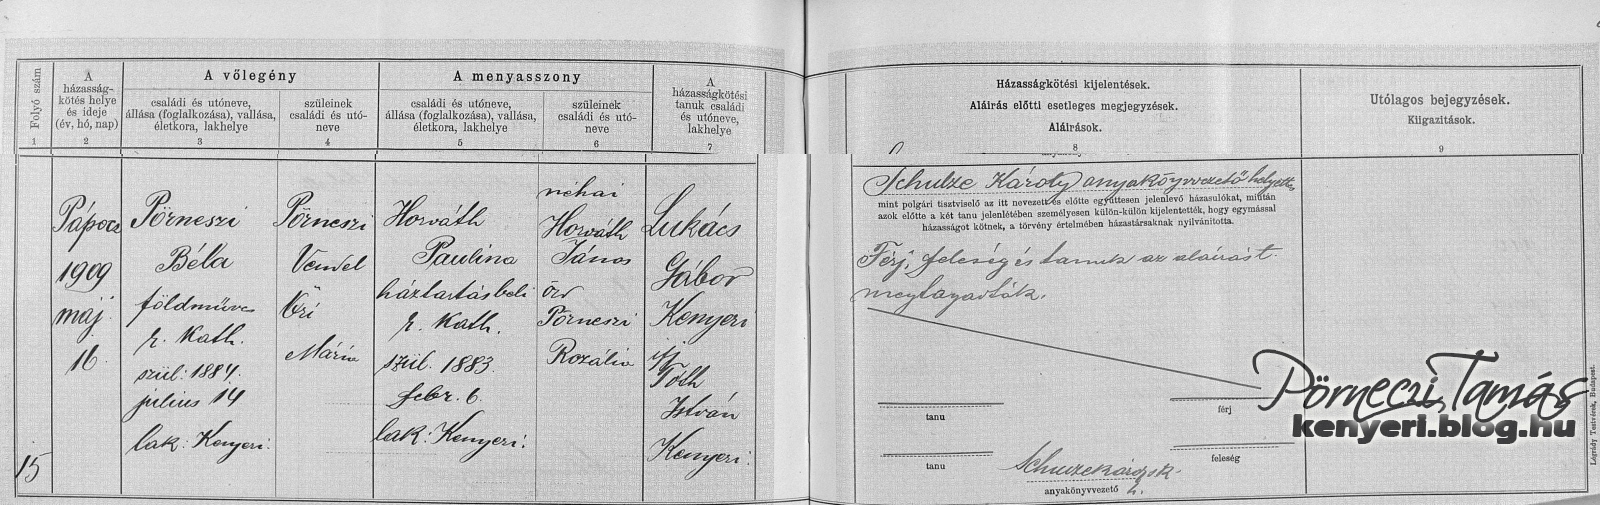 A vőlegény
A menyasszony
Folyó szám
A
házasság-
kötés helye
és ideje
(év, hó, nap)
családi és utóneve,
állása (foglalkozása), vallása,
életkora, lakhelye
szüleinek
családi és utó-
neve
családi és utóneve,
állása (foglalkozása), vallása,
életkora, lakhelye
szüleinek
családi és utó-
neve
A
házasságkötési
tanuk családi
és utóneve,
lakhelye
Házasságkötési kijelentések.
Aláirás előtti esetleges megjegyzések.
Aláirások.
Utólagos bejegyzések.
Kiigazitások.
1
2
3
4
5
6
7
8
9
15
Pápocz
1909
máj.
16.
Pörneszi
Béla
földműves
r. kath.
szül: 1884.
július 14
lak: Kenyeri.
Pörneszi
Vendel
Őri
Mária
Horváth
Paulina
háztartásbeli
r. kath.
szül. 1883.
febr. 6.
lak: Kenyeri.
néhai
Horváth
János
özv
Pörneszi
Rozália
Lukács
Gábor
Kenyeri
ifj
Tóth
István
Kenyeri.
Schulze Károly anyakönyvvezető helyettes
mint polgári tisztviselő az itt nevezett és előtte együttesen jelenlévő házasulókat, miután
azok előtte a két tanu jelenlétében személyesen külön-külön kijelentették, hogy egymással
házasságot kötnek, a törvény értelmében házastársaknak nyilvánította.
Férj, feleség és tanuk az aláírást
megtagadták.
tanu
férj
tanu
feleség
anyakönyvvezető
Pörneczi Tamás
kenyeri.blog.hu
Légrády Testvérek, Budapest.